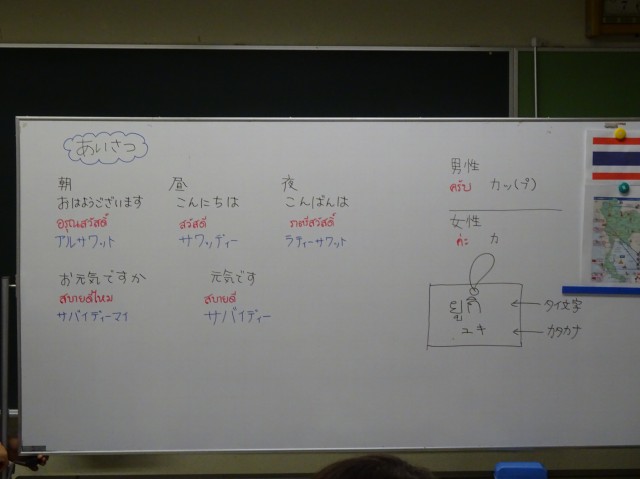 あいさつ
朝 昼 夜
おはようございます こんにちは こんばんは
อรุณสวัสดิ์ สวัสดี ราตรีสวัสดิ์
アルサワット サワッディー ラティーサワット
お元気ですか 元気です
สบายดีไหม สบายดี
サバイディーマイ サバイディー
男性
ครับ カッ(プ)
女性
ค่ะ カ
ยูกิ ← タイ文字
ユキ ← カタカナ